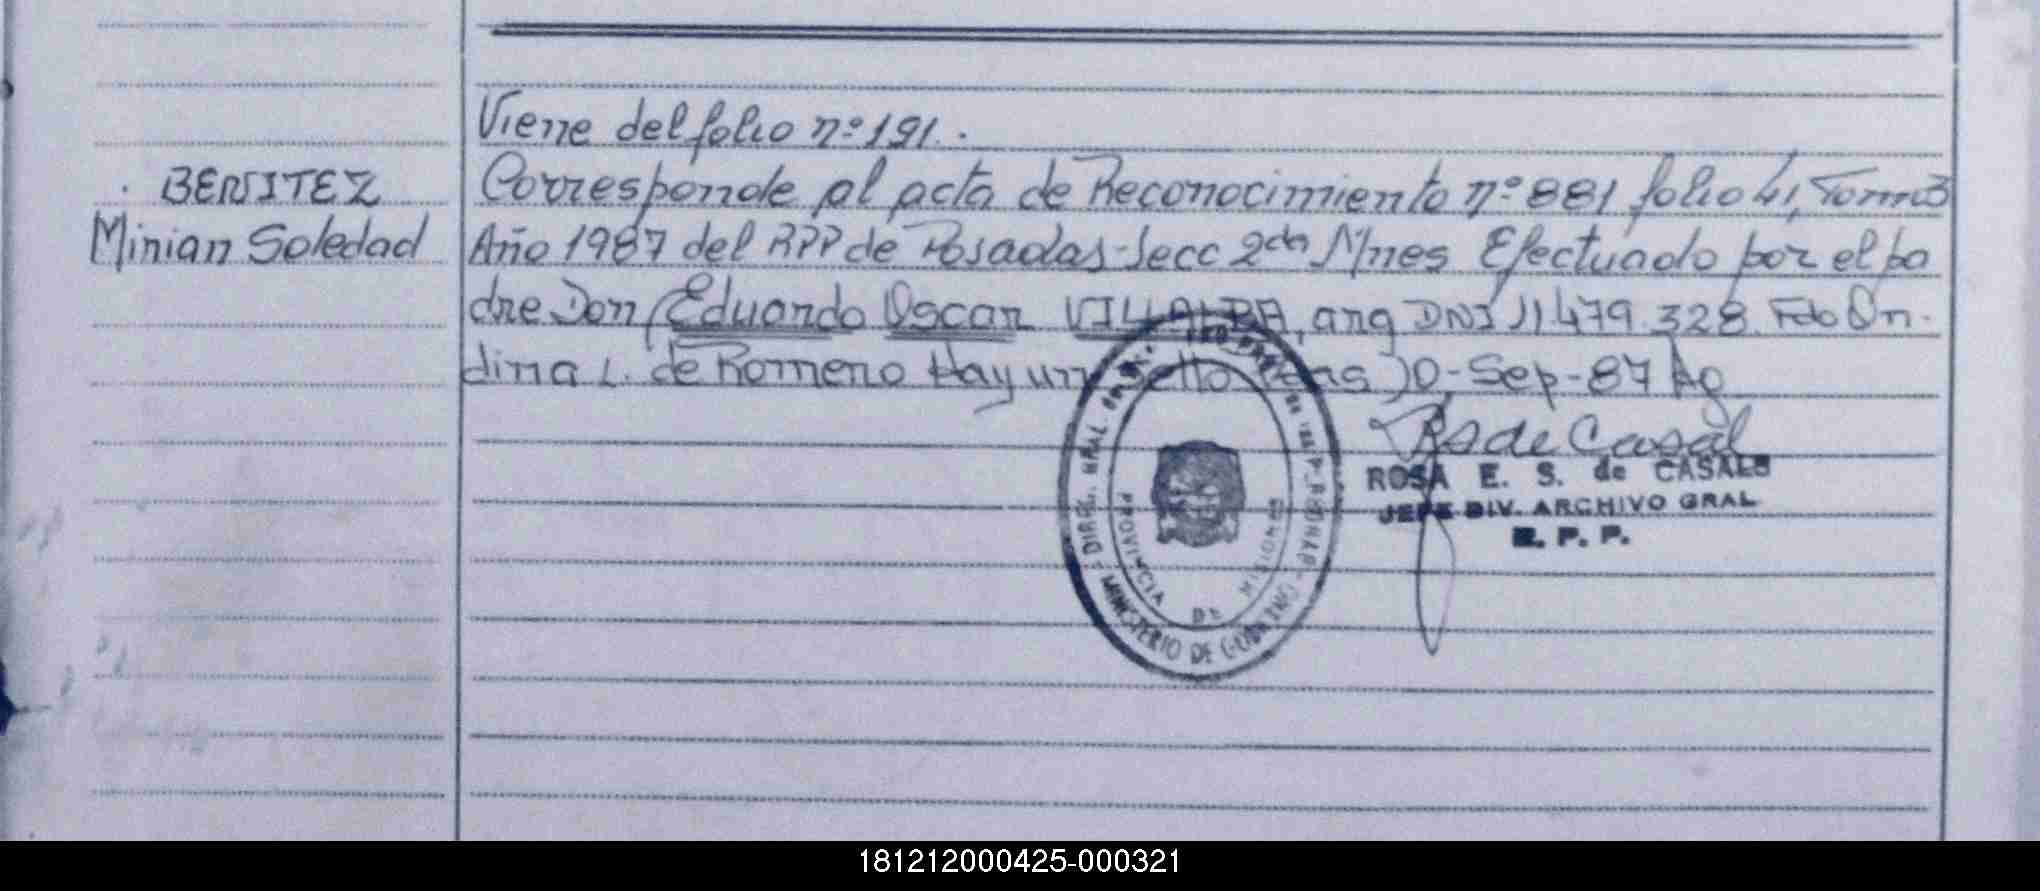 Viene del folio nº 191.
BENITEZ
Minian Soledad
Corresponde al acta de Reconocimiento nº 881 folio 41, Tomo 3
Año 1987 del RPP de Posadas-Secc 2da Mnes Efectuado por el pa
dre Don Eduardo Oscar VILLALBA, arg DNI 11.479.328. Fdo On-
dina L. de Romero Hay un Sello 10-Sep-87
Rs de Casal
ROSA E. S. de CASALS
JEFE DIV. ARCHIVO GRAL
R. P. P.
MINISTERIO DE GOBIERNO
PROVINCIA DE MISIONES
181212000425-000321